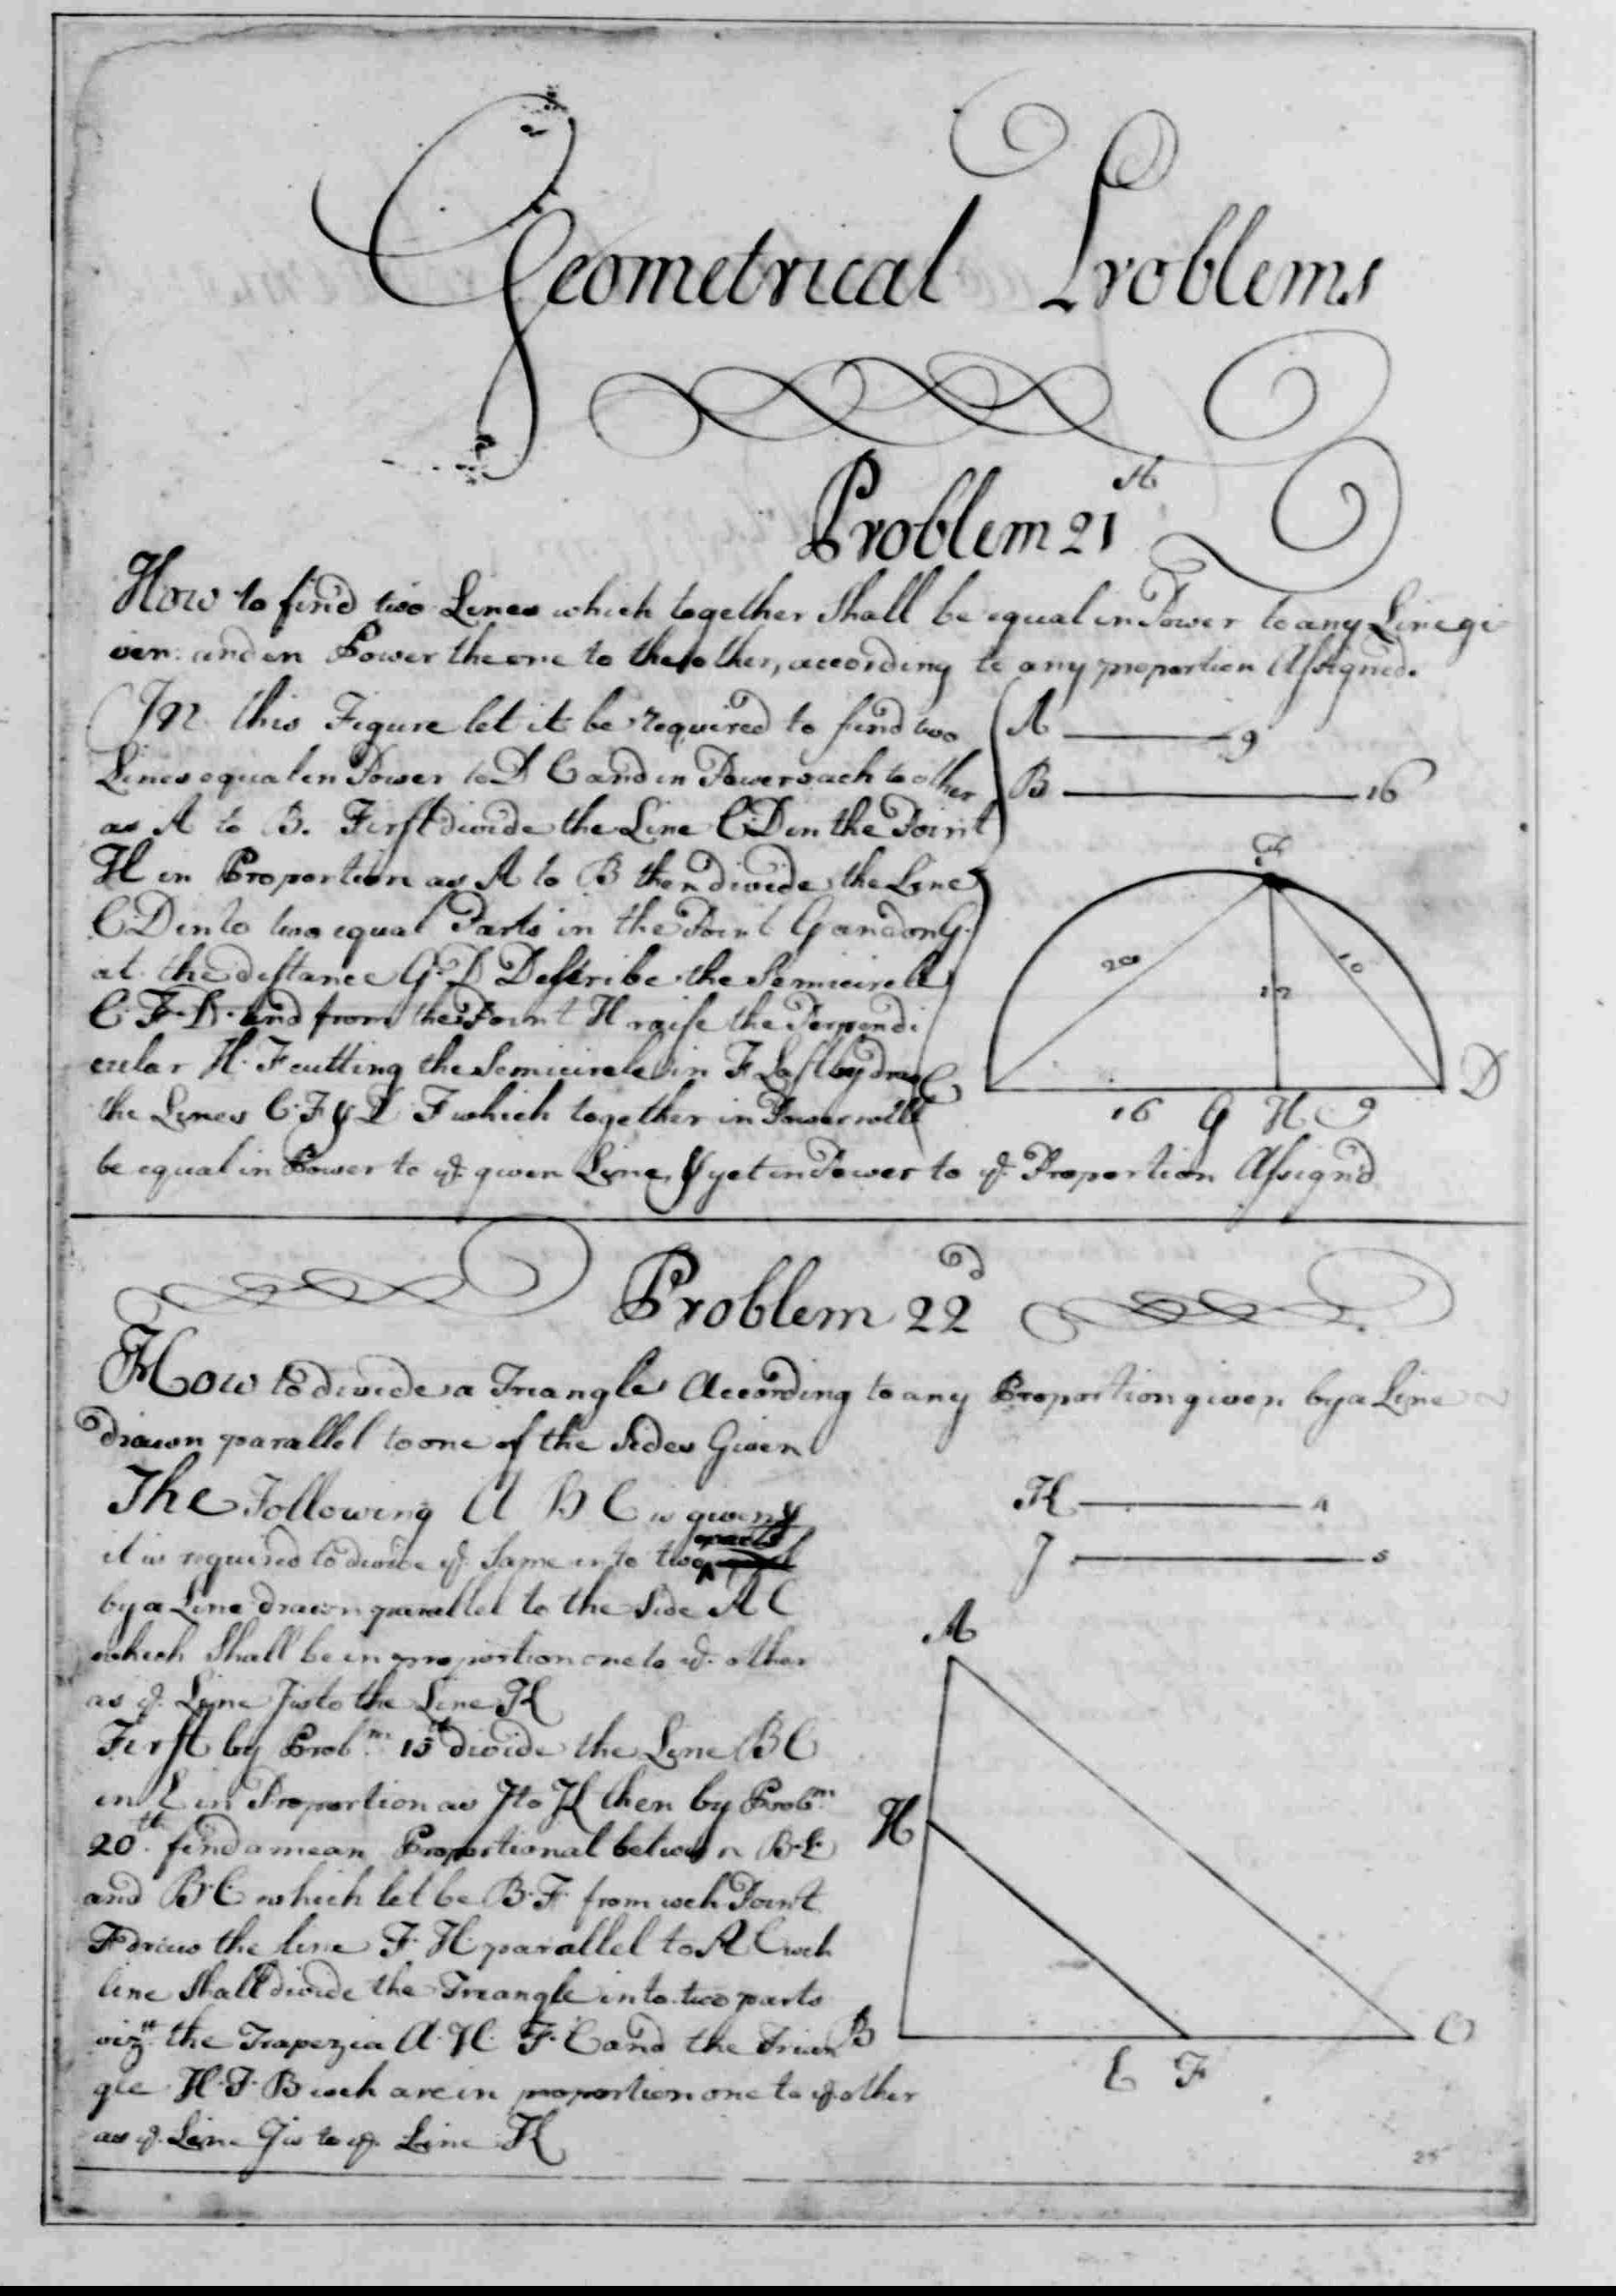 Geometrical Problems
Problem 21st
How to find two Lines which together Shall be equal in Power to any Line gi
ven: and in Power the one to the other, according to any proportion Assigned.
In this Figure let it be required to find two
Lines equal in Power to D C and in Power each to other
as A to B. First divide the Line C D in the Point
H in Proportion as A to B then divide the Line
C D in to two equal Parts in the Point G and on G
at the distance G D Describe the Semicircle
C. F. D. and from the Point H raise the Perpendi
cular H. F cutting the Semicircle in F Lastly draw
the Lines C. F & D F which together in Power will
be equal in Power to ye given Line & yet in Power to ye Proportion Assign'd
A 9
B 16
F
20
12
10
C
D
16 G H 9
Problem 22d
How to divide a Triangle According to any Proportion given by a Line
drawn parallel to one of the Sides Given
The Following A B C is given &
it is required to divide ye Same into two parts
by a Line drawn parallel to the Side A C
which Shall be in proportion one to ye other
as ye Line J is to the Line K
First by Probm 15th divide the Line B C
in E in Proportion as J to K then by Probm
20th find a mean Proportional between B. E
and B. C which let be B. F. from wch Point
F draw the line F. H parallel to A C wch
line Shall divide the Triangle into two parts
vizt the Trapezia A. H. F. C and the Trian
gle H. F. B wch are in proportion one to ye other
as ye Line J is to ye Line K
K 4
J 5
A
H
B
C
E F
25